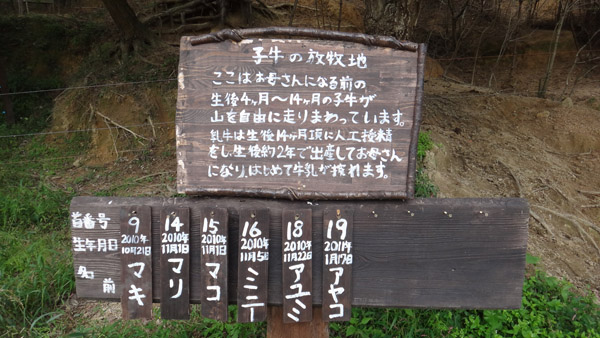 子牛の放牧地
ここはお母さんになる前の
生後4ヶ月〜14ヶ月の子牛が
山を自由に走りまわっています。
乳牛は生後14ヶ月頃に人工授精
をし、生後約2年で出産してお母さん
になり、はじめて牛乳が搾れます。
首番号 9 14 15 16 18 19
生年月日 2010年10月21日 2010年11月1日 2010年11月1日 2010年11月5日 2010年11月22日 2011年1月17日
名前 マキ マリ マコ ミミニー アユミ アヤコ